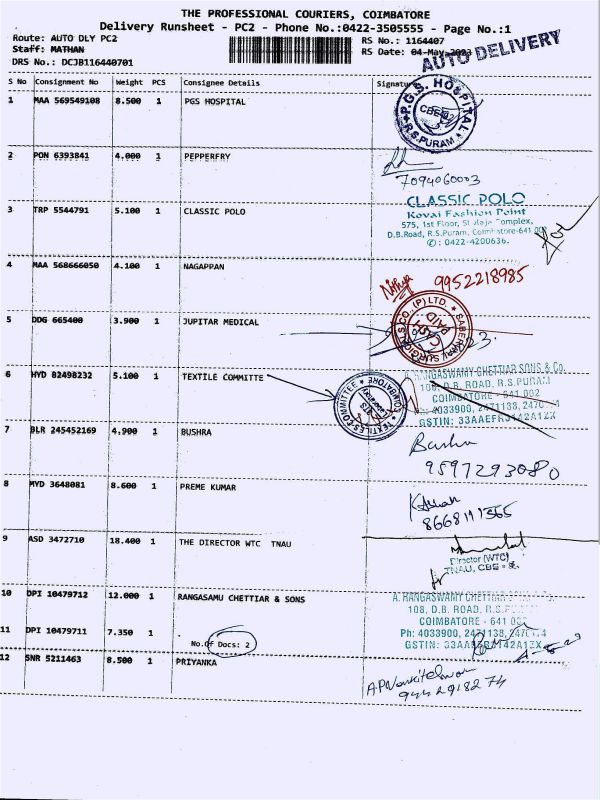 THE PROFESSIONAL COURIERS, COIMBATORE
Delivery Runsheet - PC2 - Phone No.:0422-3505555 - Page No.:1
Route: AUTO DLY PC2 RS No.: 1164407
Staff: MATHAN RS Date: 04-May-2023
AUTO DELIVERY
DRS No.: DCJB116440701
S No Consignment No Weight PCS Consignee Details Signature
1 MAA 569549108 8.500 1 PGS HOSPITAL
P.G.S. HOSPITAL
R.S.PURAM
2 PON 6393841 4.000 1 PEPPERFRY
7094060003
3 TRP 5544791 5.100 1 CLASSIC POLO
CLASSIC POLO
Kovai Fashion Point
575, 1st Floor, Complex,
D.B.Road, R.S.Puram, Coimbatore-641 002
✆: 0422-4200636.
4 MAA 568666050 4.100 1 NAGAPPAN
Nithya 9952218985
5 DDG 665400 3.900 1 JUPITAR MEDICAL
SURGICALS CO. (P) LTD.
6 HYD 82498232 5.100 1 TEXTILE COMMITTE
TEXTILES COMMITTEE
COIMBATORE
A. RANGASWAMY CHETTIAR SONS & Co.
108, D.B. ROAD, R.S.PURAM
COIMBATORE - 641 002
Ph: 4033900, 2471138,
GSTIN:
7 BLR 245452169 4.900 1 BUSHRA
Bushra
9597293080
8 MYD 3648081 8.600 1 PREME KUMAR
8668111365
9 ASD 3472710 18.400 1 THE DIRECTOR WTC TNAU
Director (WTC)
TNAU, CBE - 3.
10 DPI 10479712 12.000 1 RANGASAMU CHETTIAR & SONS
A. RANGASWAMY CHETTIAR SONS
108, D.B. ROAD, R.S.
COIMBATORE - 641 002
11 DPI 10479711 7.350 1
Ph: 4033900, 2471138,
GSTIN:
No.Of Docs: 2
12 SNR 5211463 8.500 1 PRIYANKA